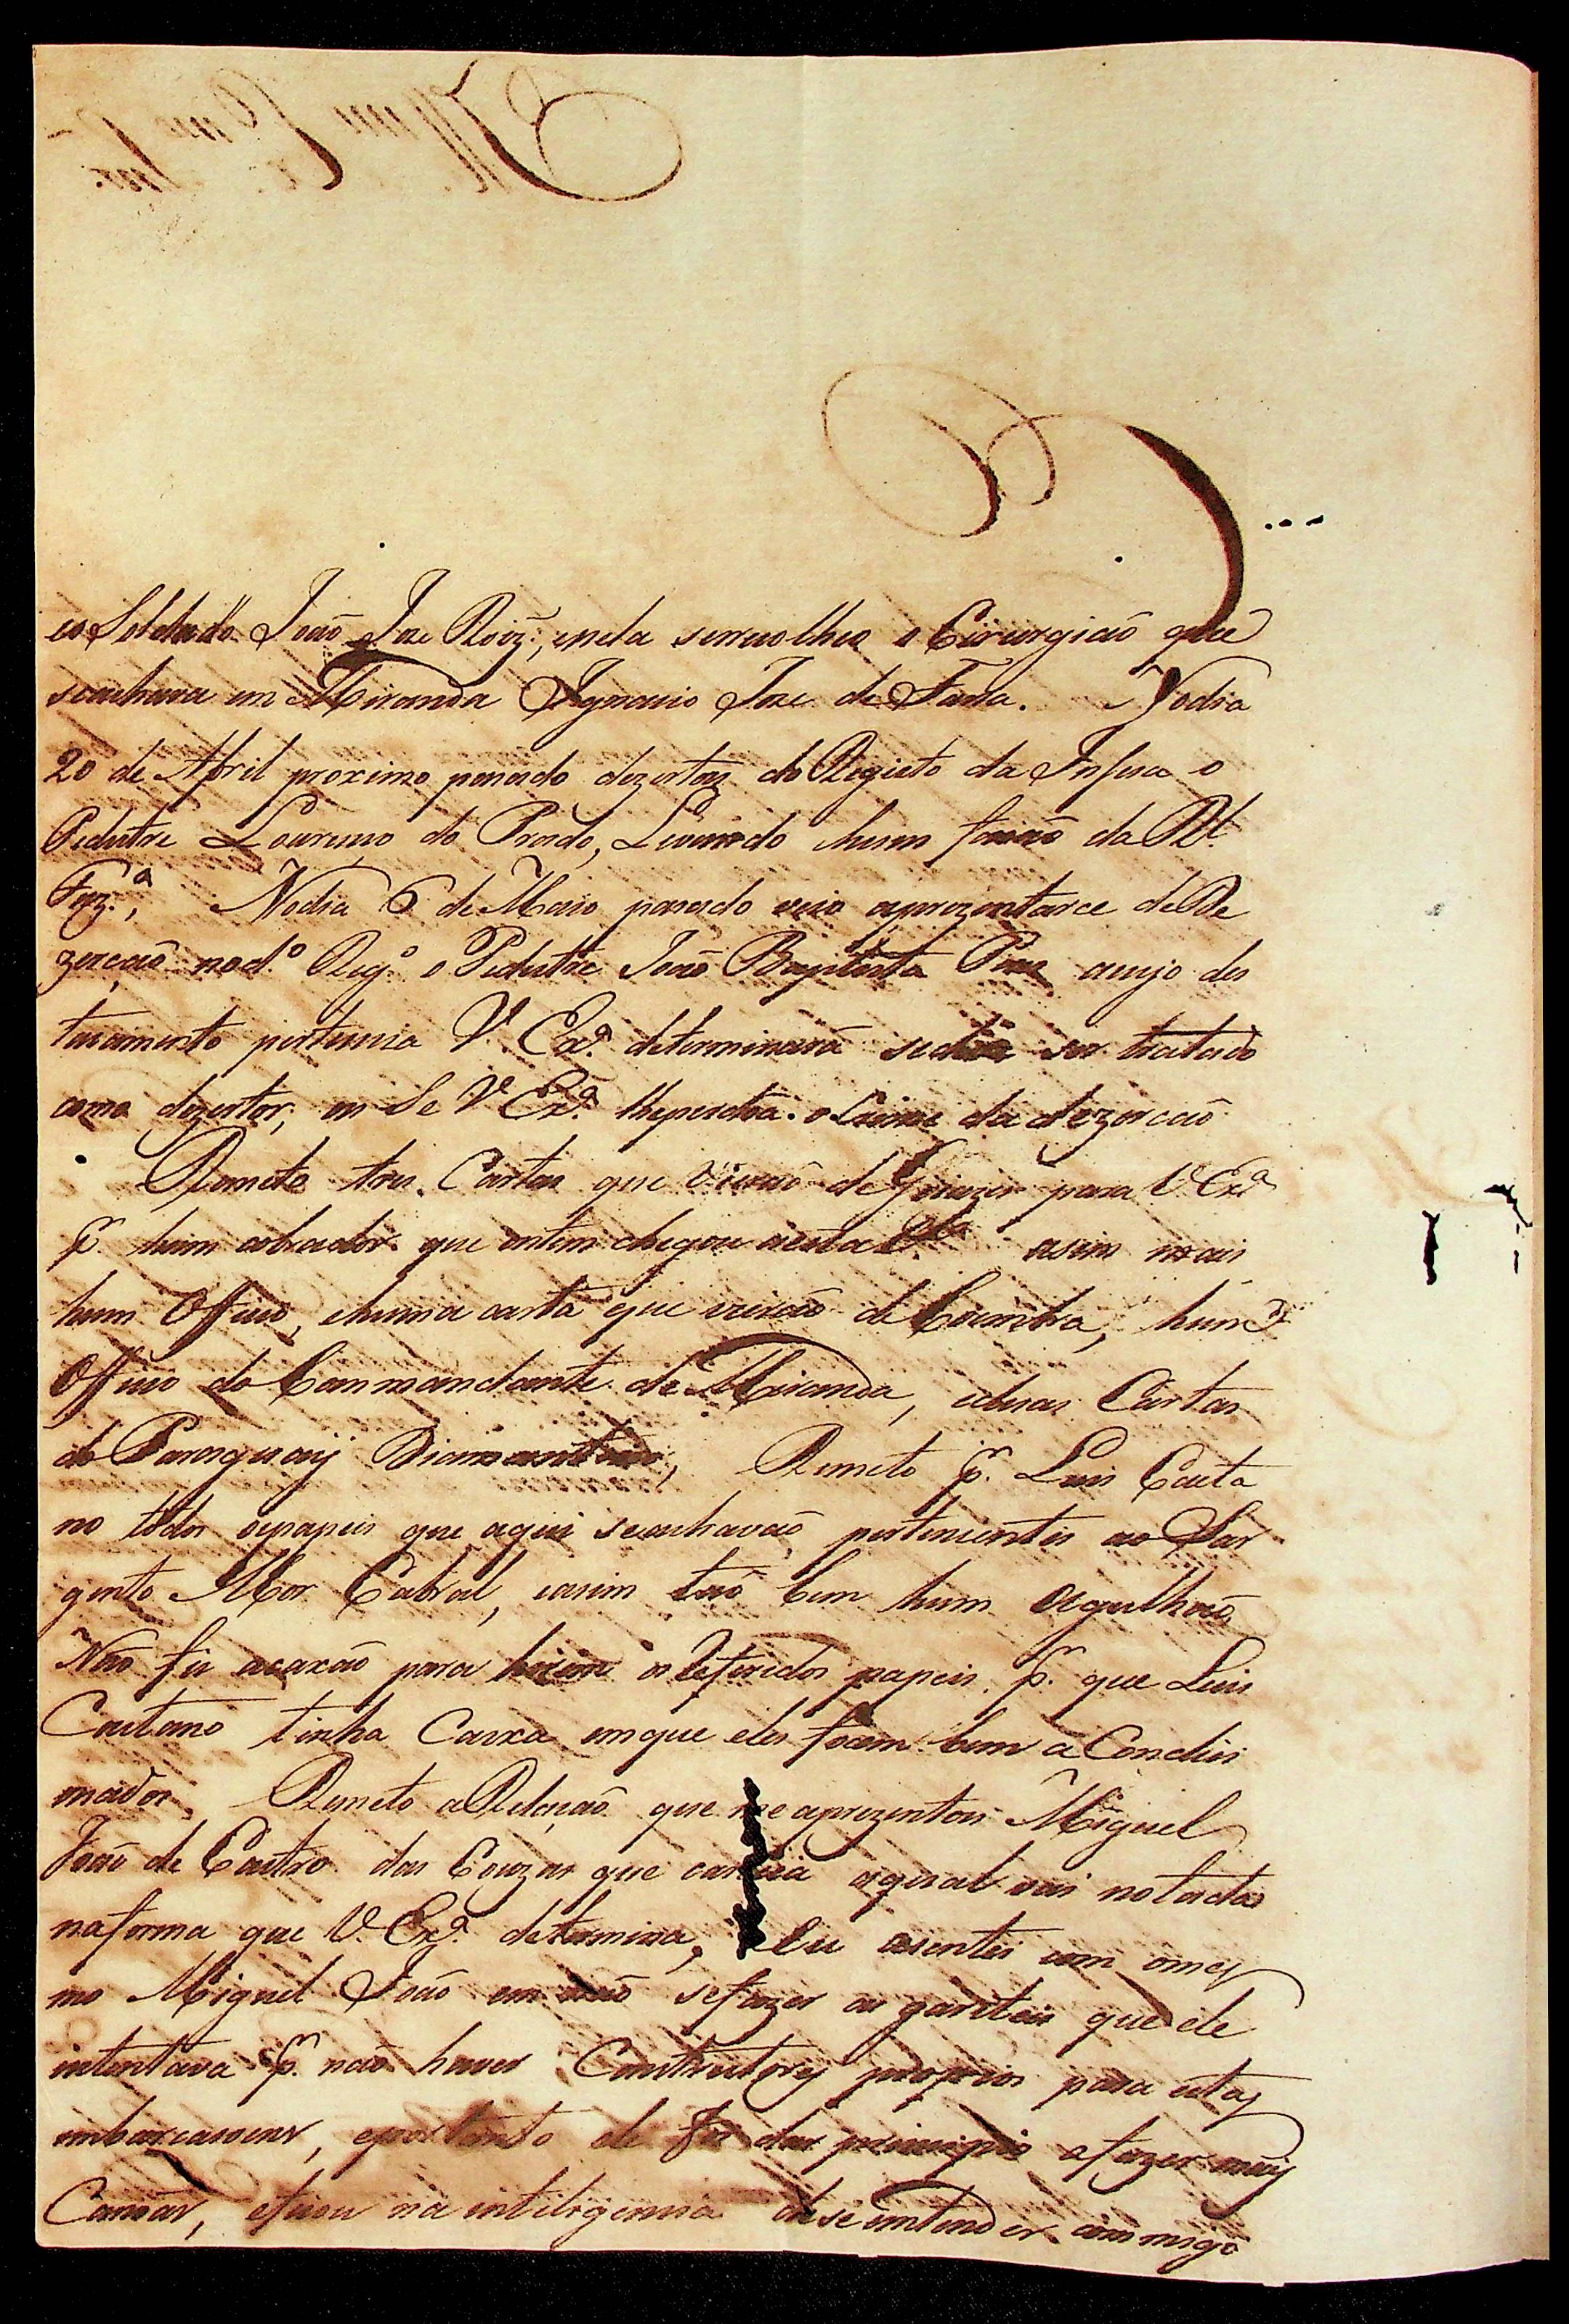 eo Soldado João Joze Roiz', enela serrecolheo o Cirurgiaõ que
seachava em Miranda Ignacio Joze de Faria. Nodia
20 de Abril proximo pasado dezertou do Registo da Insua o
Pedestre Lourenço do Prado, Levando hum da Rl.
Faz.ª, Nodia 6 de Maio pasado veio aprezentarce de De
zerçaõ nod.º Reg.º o Pedestre João Baptista acujo des
tacamento pertencia V. Ex.ª determinará sedeve ser tratado
como dezertor, ou Se V Ex.ª lheperdoa o Crime da dezercaõ
Remeto tres Cartas que vieraõ de Goiazes para V. Ex.ª
p.r hum cobrador que ontem chegou aesta V.ª asim mais
hum Officio, ehuma carta que vieraõ de Coimbra, hum
Officio do Commandante de Miranda, eduas Cartas
do Paraguaij Diamantino, Remeto p.r Luis Caeta
no todos ospapeis que aqui seachavaõ pertencentes ao Sar
gento Mor Cabral, easim taõ bem hum Agulhaõ
Naõ fis acaxaõ para hirem os Referidos papeis p.r que Luis
Caetano tinha Caixa emque eles focem bem aCondis
mados. Remeto aRelaçaõ que me aprezentou Miguel
João de Castro das Couzas que carecia aqual vai notada
naforma que V. Ex.ª determina, Eu asentei com omes
mo Miguel João em naõ sefazer os que ele
intentava p.r naõ haver Construtores proprios para estas
embarcasoens, eportanto ele fes dar principio afazer mais
Canoas, eficou na inteligencia dese entender commigo